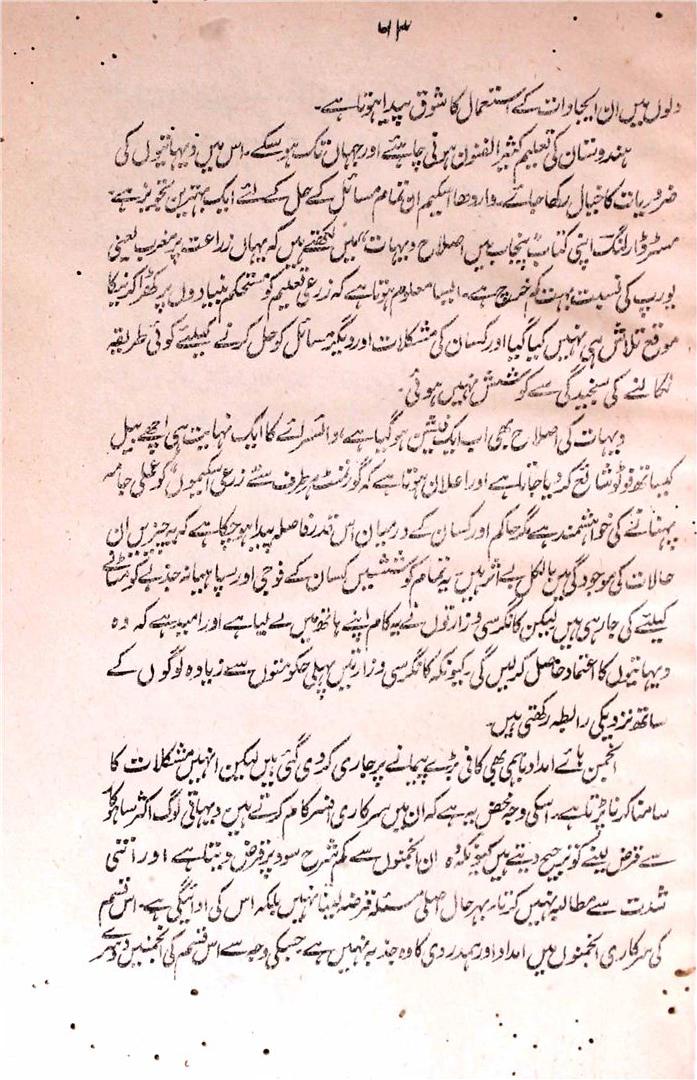 ۷۳
دلوں میں ان ایجادات کے استعمال کا شوق پیدا ہوتا ہے۔
ہندوستان کی تعلیم کثیر الفنون ہونی چاہئے اور جہاں تک ہو سکے۔ اس میں دیہاتیوں کی
ضروریات کا خیال رکھا جائے۔ واردھا اسکیم ان تمام مسائل کے حل کے لئے ایک بہترین تجویز ہے۔
مسٹر ڈارلنگ اپنی کتاب پنجاب میں اصلاح دیہات، میں لکھتے ہیں کہ یہاں زراعت پر مغرب یعنی
یورپ کی نسبت بہت کم خرچ ہے۔ ایسا معلوم ہوتا ہے کہ زرعی تعلیم کو مستحکم بنیادوں پر کھڑا کرنیکا
موقع تلاش ہی نہیں کیا گیا اور کسان کی مشکلات اور دیگر مسائل کو حل کرنے کیلئے کوئی طریقہ
نکالنے کی سنجیدگی سے کوشش نہیں ہوئی۔
دیہات کی اصلاح بھی اب ایک فیشن ہو گیا ہے، وائسرائے کا ایک نہایت ہی اچھے بیل
کیساتھ فوٹو شائع کر دیا جاتا ہے اور اعلان ہوتا ہے کہ گورنمنٹ ہر طرف سے زرعی اسکیموں، کو عملی جامہ
پہنانے کی خواہشمند ہے مگر حاکم اور کسان کے درمیان اس قدر فاصلہ پیدا ہو چکا ہے کہ یہ چیزیں ان
حالات کی موجودگی میں بالکل بے اثر ہیں یہ تمام کوششیں کسان کے فوجی اور سپاہیانہ جذبے کو مٹانے
کیلئے کی جا رہی ہیں لیکن کانگرسی وزارتوں نے یہ کام اپنے ہاتھ میں لے لیا ہے اور امید ہے کہ وہ
دیہاتیوں کا اعتماد حاصل کر لیں گی۔ کیونکہ کانگرسی وزارتیں پہلی حکومتوں سے زیادہ لوگوں کے
ساتھ نزدیکی رابطہ رکھتی ہیں۔
انجمن ہائے امداد باہمی بھی کافی بڑے پیمانے پر جاری کر دی گئی ہیں لیکن انہیں مشکلات کا
سامنا کرنا پڑتا ہے۔ اسکی وجہ محض یہ ہے کہ ان میں سرکاری افسر کام کرتے ہیں۔ دیہاتی لوگ اکثر ساہوکار
سے قرض لینے کو ترجیح دیتے ہیں کیونکہ وہ ان انجمنوں سے کم شرح سود پر قرض دیتا ہے اور اتنی
شدت سے مطالبہ نہیں کرتا۔ بہرحال اصلی مسئلہ قرضہ لینا نہیں بلکہ اس کی ادائیگی ہے۔ اس قسم
کی سرکاری انجمنوں میں امداد اور ہمدردی کا وہ جذبہ نہیں ہے جسکی وجہ سے اس قسم کی انجمنیں دوسرے